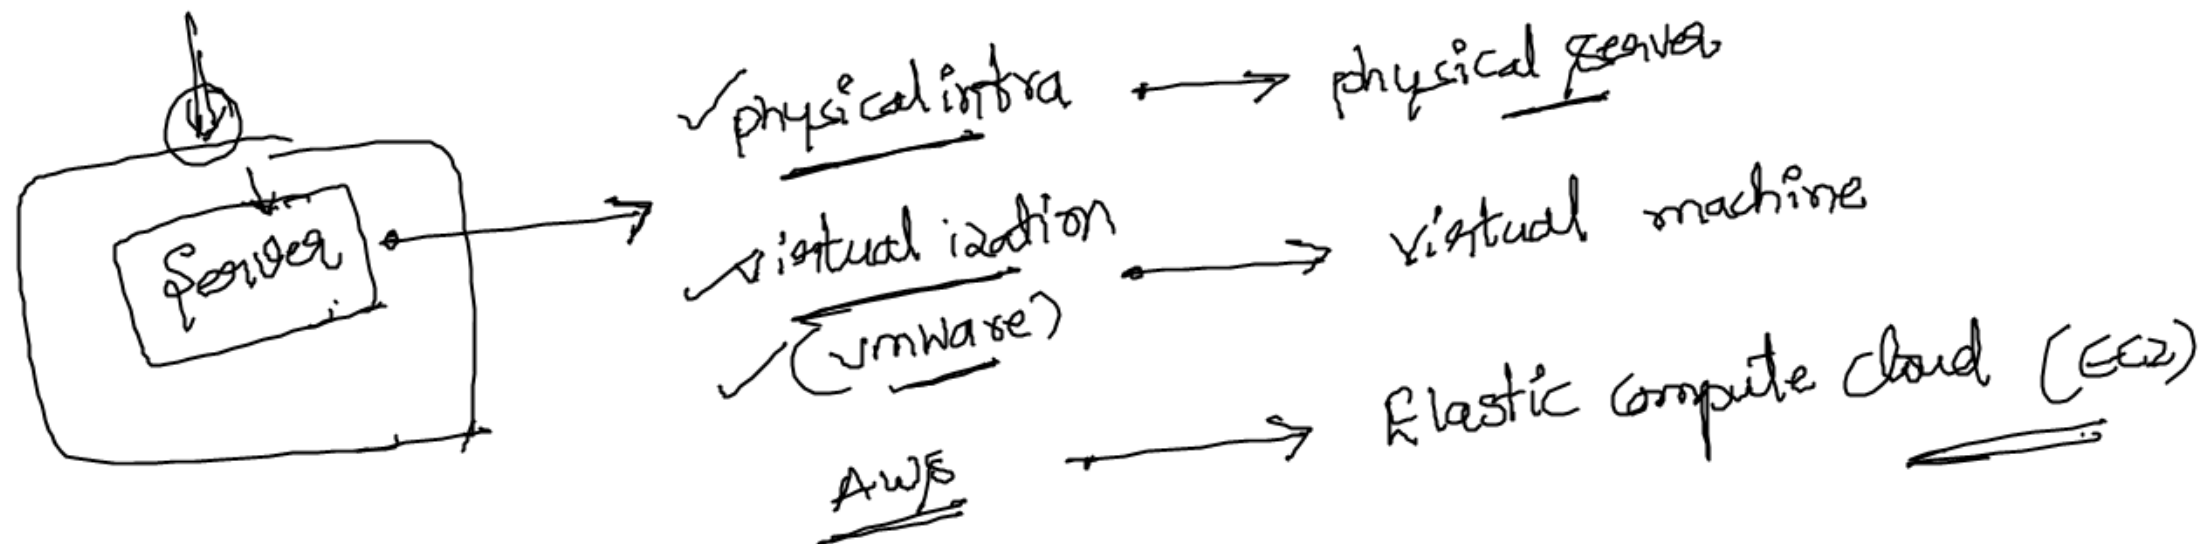 Server
physical infra → physical server
virtualization → virtual machine
(vmware)
AWS → Elastic compute cloud (EC2)